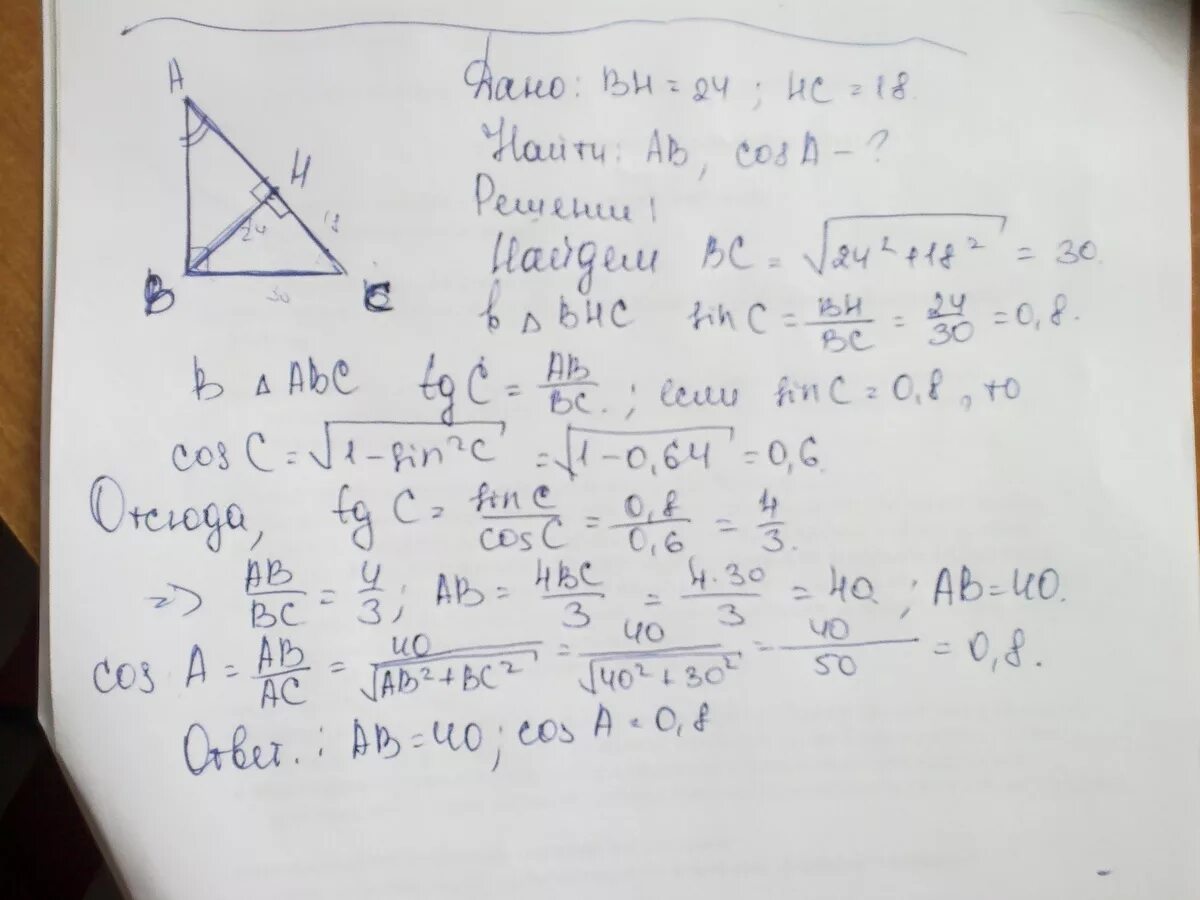 A
H
24
18
B
30
C
Дано: BH = 24 ; HC = 18.
Найти: AB, cosA - ?
Решении!
Найдем BC = √(24² + 18²) = 30.
В △ BHC sin C = BH/BC = 24/30 = 0,8.
В △ ABC tg C = AB/BC. ; если sin C = 0,8, то
cos C = √(1 - sin²C) = √(1 - 0,64) = 0,6.
Отсюда, tg C = sin C/cos C = 0,8/0,6 = 4/3.
=> AB/BC = 4/3 ; AB = 4BC/3 = 4·30/3 = 40 ; AB = 40.
cos A = AB/AC = 40/√(AB² + BC²) = 40/√(40² + 30²) = 40/50 = 0,8.
Ответ. : AB = 40 ; cos A = 0,8